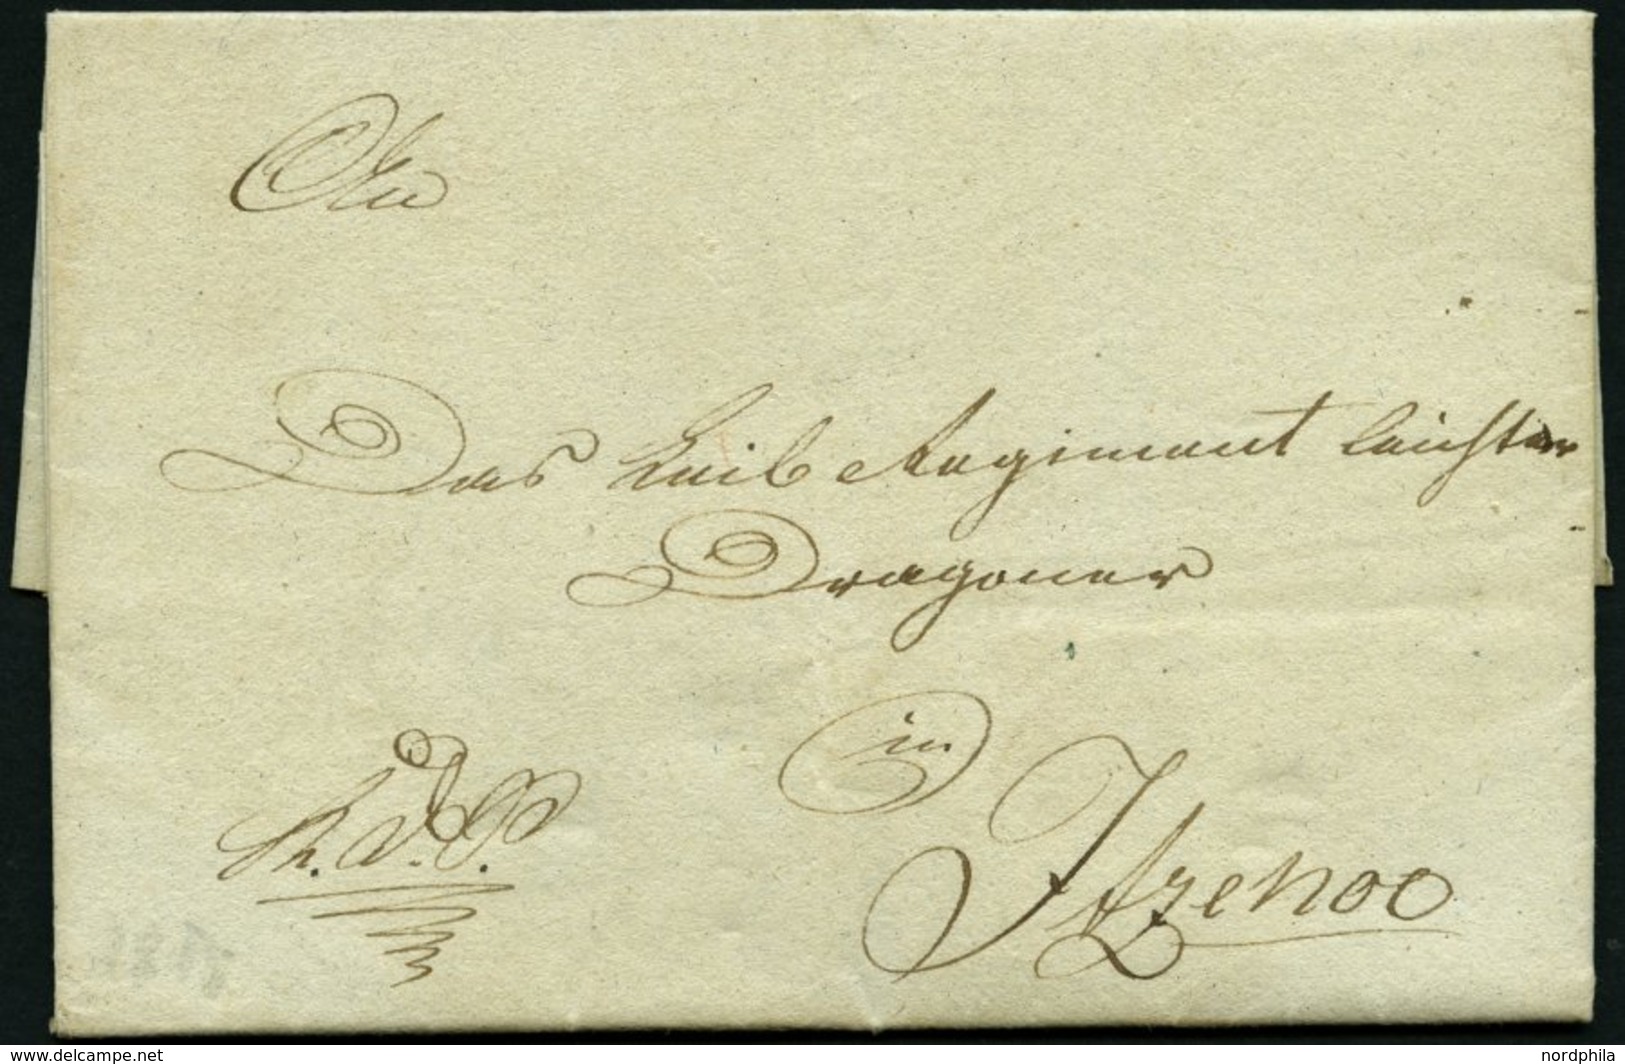 An
Das Leib Regiment leichter
Dragoner
in
K. D. S.
Itzehoe
www.delcampe.net
nordphila